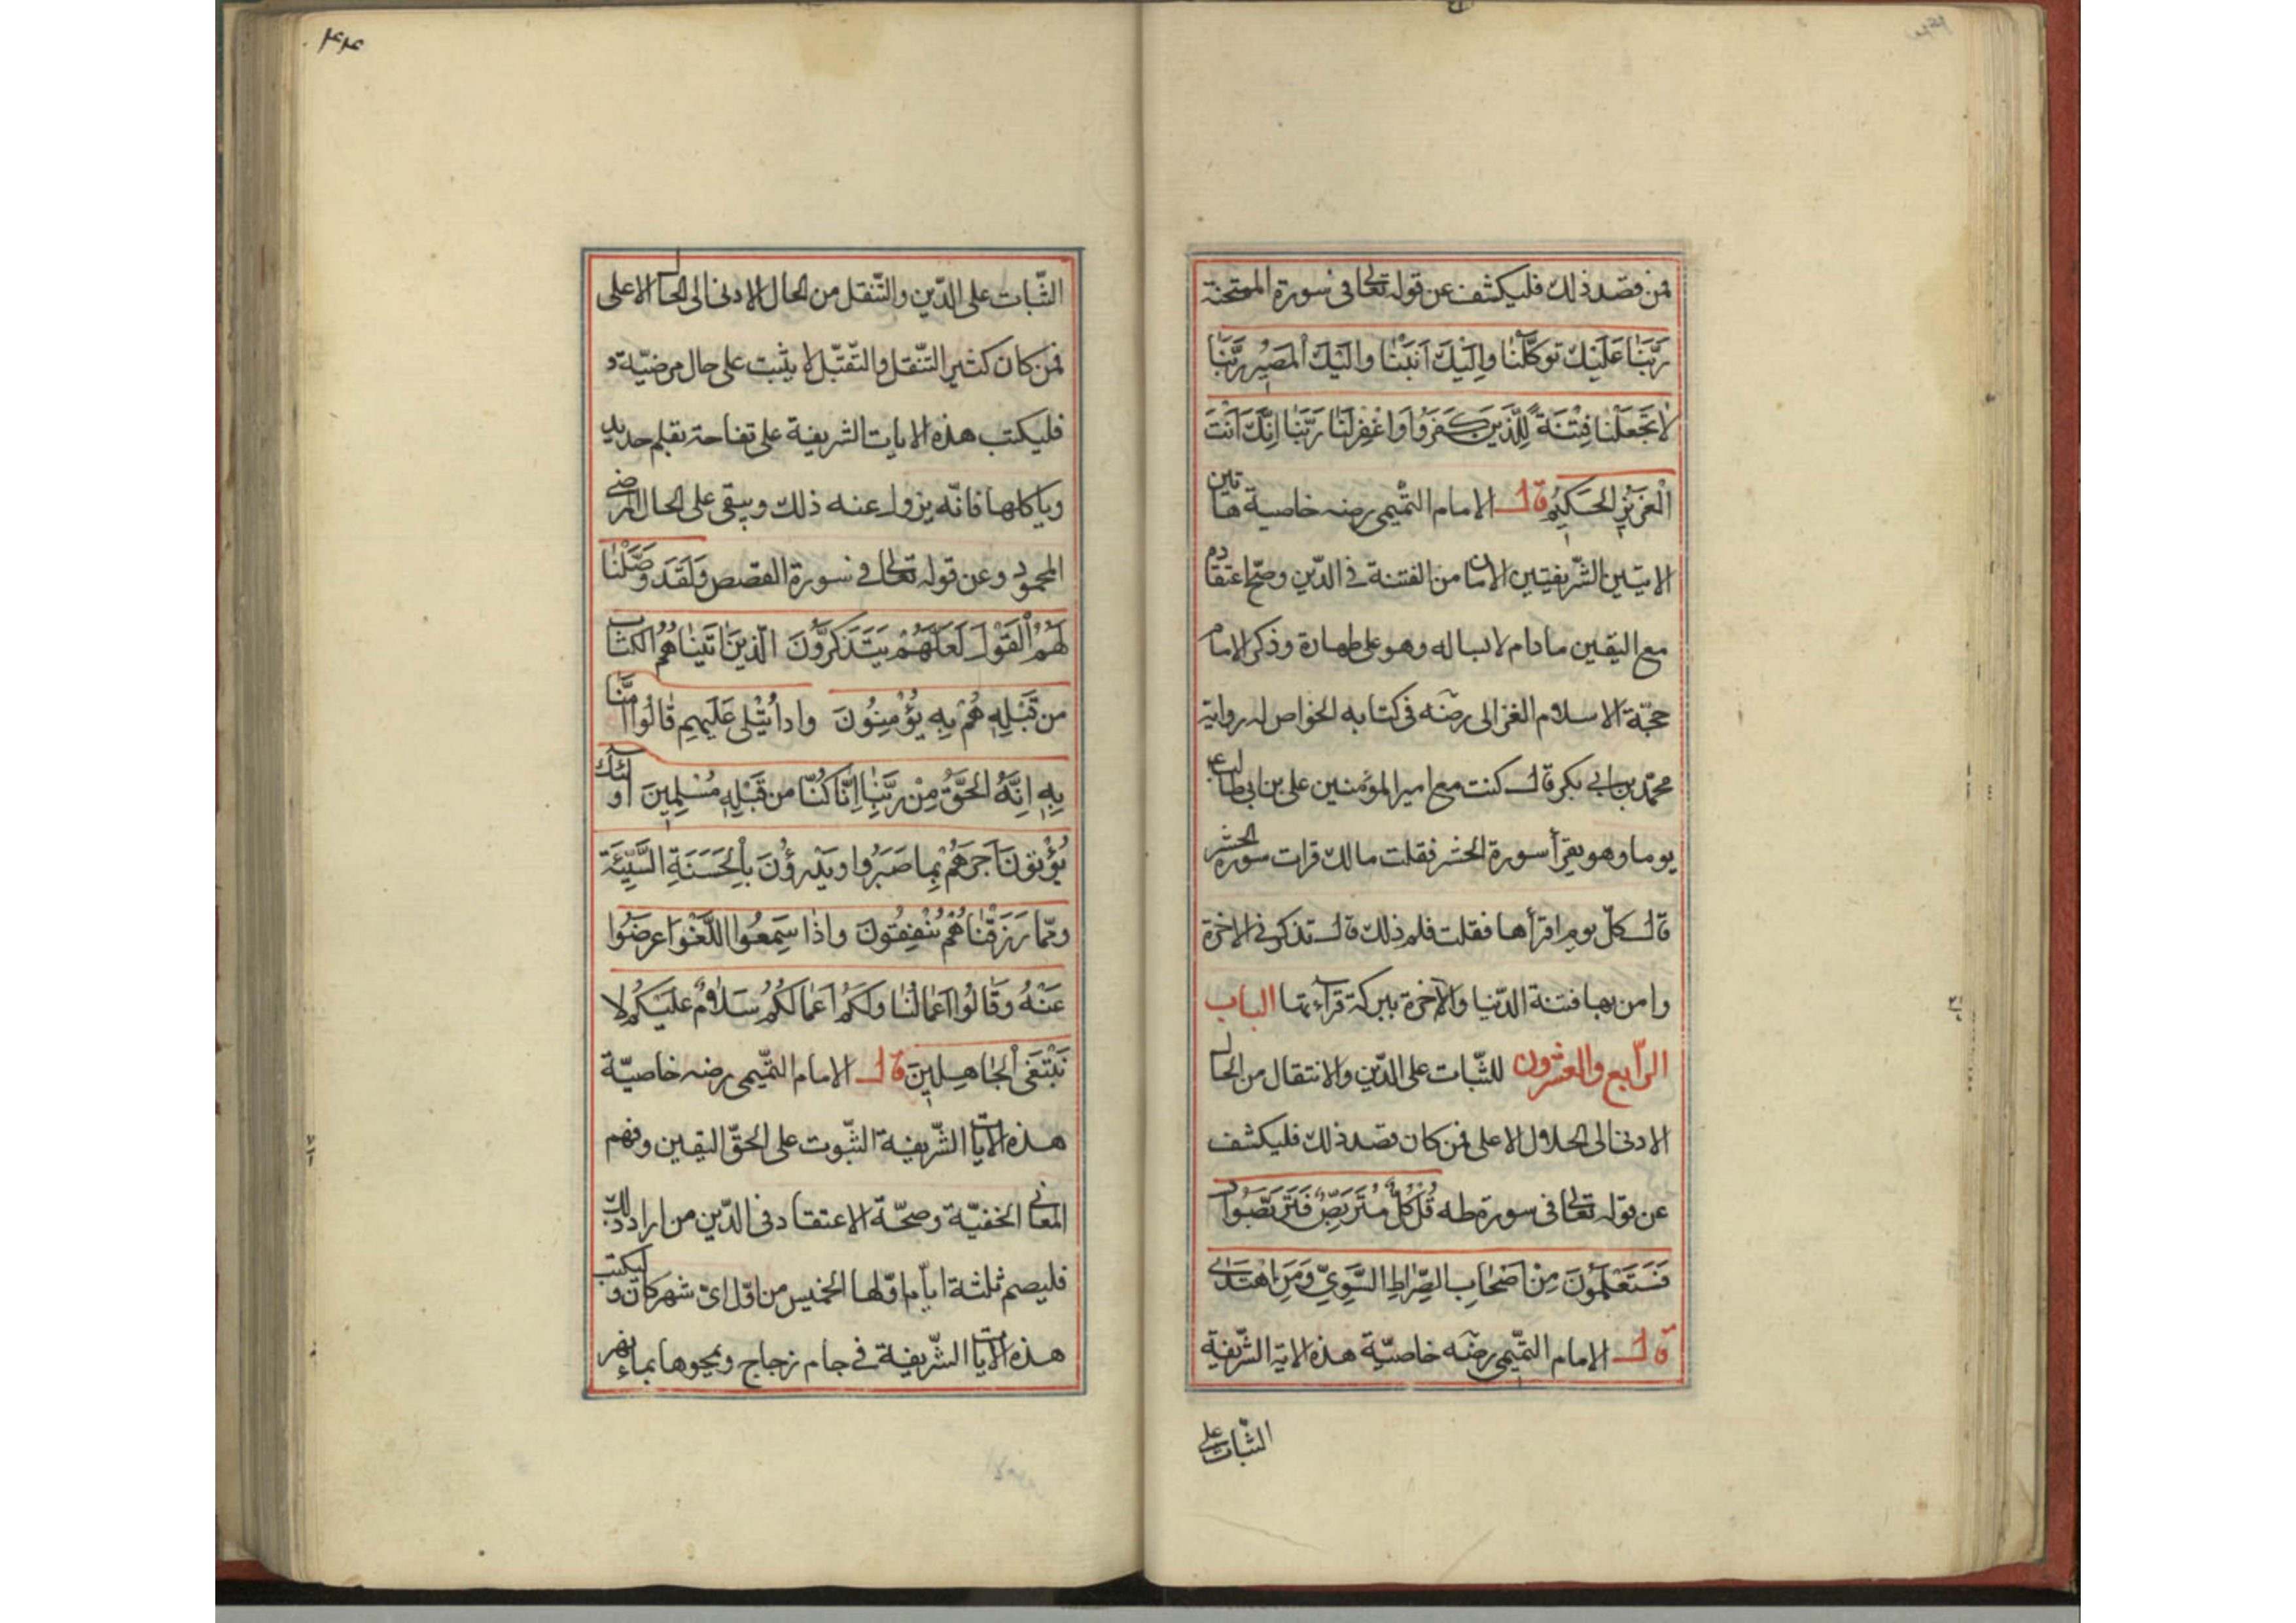 فمن قصد ذلك فليكشف عن قوله تعالى فى سورة الممتحنة
رَبَّنَا عَلَيْكَ تَوَكَّلْنَا وَاِلَيْكَ اَنَبْنَا وَاِلَيْكَ الْمَصِيرُ رَبَّنَا
لَا تَجْعَلْنَا فِتْنَةً لِلَّذِينَ كَفَرُوا وَاغْفِرْ لَنَا رَبَّنَا اِنَّكَ اَنْتَ
الْعَزِيزُ الْحَكِيمُ قال الامام التّميمى رضه خاصية هاتين
الايتين الشّريفتين الامان من الفتنة فى الدّين وصحّ اعتقادم
مع اليقين ما دام لابسا له وهو على طهارة وذكر الامام
حجّة الاسلام الغزالى رضه فى كتابه الخواص له رواية
محمّد بن ابى بكر قال كنت مع امير المؤمنين على بن ابى طالب
يوما وهو يقرأ سورة الحشر فقلت مالك قرات سورة الحشر
قال كلّ يوم اقرأها فقلت فلم ذلك قال تذكر فى الاخرة
وامن بها فتنة الدّنيا والآخرة ببركة قرآءتها الباب
الرّابع والعشرون للثّبات على الدّين والانتقال من الحال
الادنى الى الحلال الاعلى فمن كان قصد ذلك فليكشف
عن قوله تعالى فى سورة طه قُلْ كُلٌّ مُتَرَبِّصٌ فَتَرَبَّصُوا
فَسَتَعْلَمُونَ مِنْ اَصْحَابِ الصِّرَاطِ السَّوِيِّ وَمَنِ اهْتَدَى
قال الامام التّميمى رضه خاصيّة هذه الاية الشّريفة
الثّبات على
۴۴
الثّبات على الدّين والتّنقل من الحال الادنى الى الحال الاعلى
فمن كان كثير التّنقل والتّقبّل لا يثبت على حال مرضيّة و
فليكتب هذه الايات الشريفة على تفاحة بقلم حديد
وياكلها فانّه يزول عنه ذلك ويبقى على الحال المرضى
المحمود وعن قوله تعالى فى سورة القصص وَلَقَدْ وَصَّلْنَا
لَهُمُ الْقَوْلَ لَعَلَّهُمْ يَتَذَكَّرُونَ الَّذِينَ اٰتَيْنَاهُمُ الْكِتَابَ
مِن قَبْلِهِ هُمْ بِهِ يُؤْمِنُونَ وَاِذا يُتْلَى عَلَيْهِمْ قَالُوا اٰمَنَّا
بِهِ اِنَّهُ الْحَقُّ مِنْ رَبِّنَا اِنَّا كُنَّا مِن قَبْلِهِ مُسْلِمِينَ اولئك
يُؤْتَوْنَ اَجْرَهُمْ بِمَا صَبَرُوا وَيَدْرَؤُنَ بِالْحَسَنَةِ السَّيِّئَةَ
وَمِمَّا رَزَقْنَاهُمْ يُنْفِقُونَ وَاِذَا سَمِعُوا اللَّغْوَ اَعْرَضُوا
عَنْهُ وَقَالُوا اَعْمَالُنَا وَلَكُمْ اَعْمَالُكُمْ سَلَامٌ عَلَيْكُمْ لا
نَبْتَغِى الْجَاهِلِينَ قال الامام التّميمى رضه خاصيّة
هذه الآيات الشّريفة الثّبوت على الحقّ اليقين وفهم
المعانى الخفيّة وصحّة الاعتقاد فى الدّين من اراد ذلك
فليصم ثلثة ايّام اوّلها الخميس من اوّل اىّ شهر كان وليكتب
هذه الآيات الشّريفة فى جام زجاج ويمحوها بماء نهر